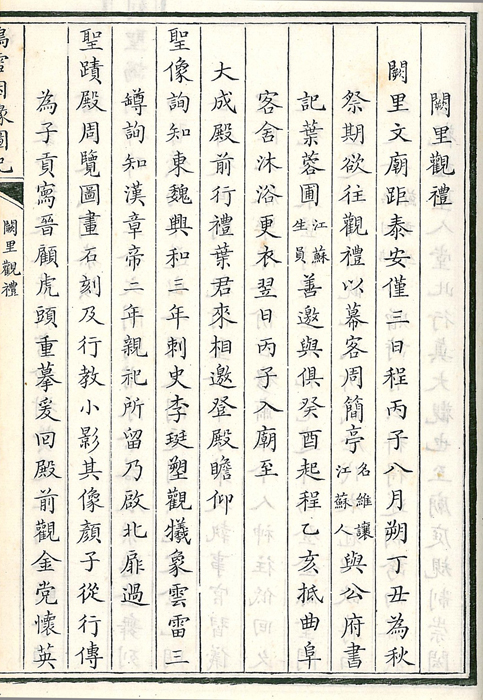 闕里觀禮
闕里文廟距泰安僅三日程丙子八月朔丁丑為秋
祭期欲往觀禮以幕客周簡亭名維讓江蘇人與公府書
記葉蓉圃江蘇生員善邀與俱癸酉起程乙亥抵曲阜
客舍沐浴更衣翌日丙子入廟至
大成殿前行禮葉君來相邀登殿瞻仰
聖像詢知東魏興和三年刺史李珽塑觀犧象雲雷三
罇詢知漢章帝二年親祀所留乃啟北扉過
聖蹟殿周覽圖畫石刻及行教小影其像顏子從行傳
為子貢寫晉顧虎頭重摹爰回殿前觀金党懷英
鴻雪因緣圖記
闕里觀禮